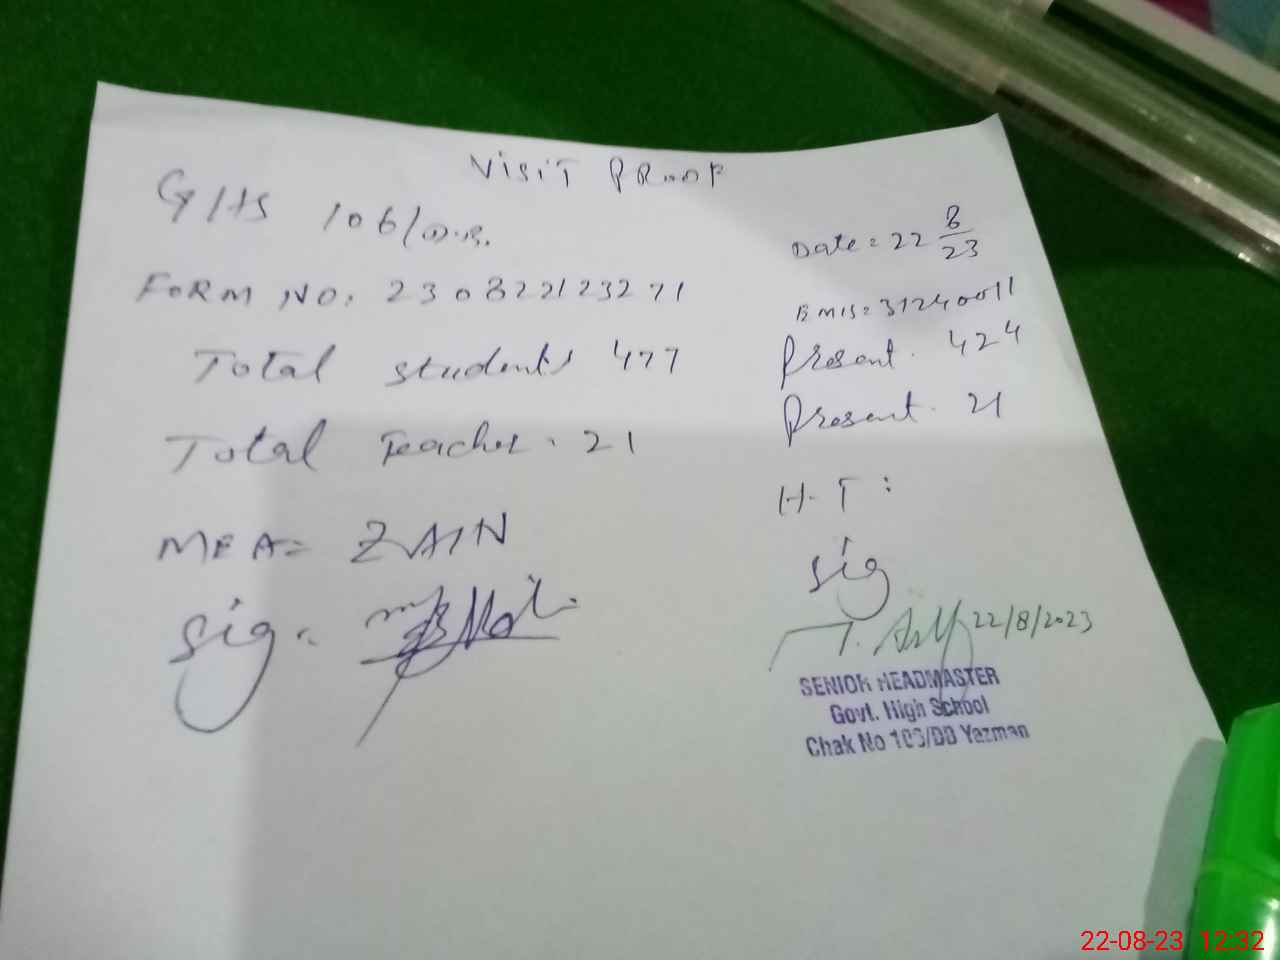 VISIT PROOF
GHS 106/D.B.
Date = 22 8/23
FORM NO. 230822123271
EMIS = 31240011
Total students 477
Present. 424
Total Teacher. 21
Present. 21
MEA = ZAIN
H.T:
Sig.
Sig
22/8/2023
SENIOR HEADMASTER
Govt. High School
Chak No 106/DB Yazman
22-08-23 12:32